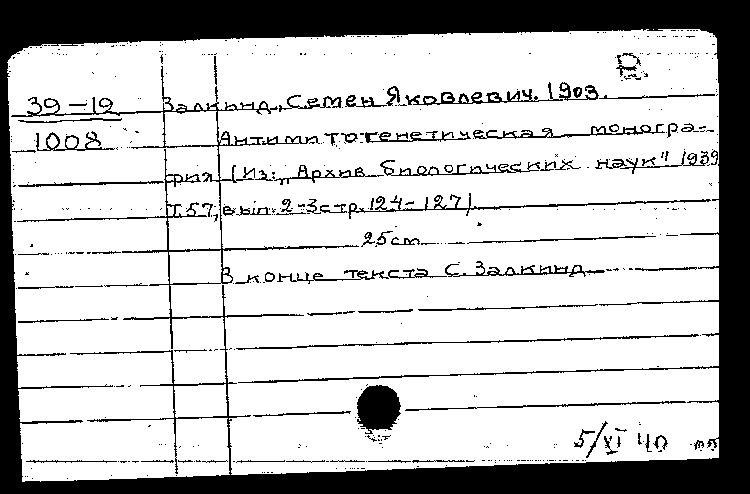 В.
39-19 Залкинд, Семен Яковлевич. 1903.
1008 Антимитогенетическая моногра-
фия [Из: „Архив биологических наук" 1939
Т.57, вып. 2-3 стр. 124-127]
25cm
В конце текста С. Залкинд
5/XI 40